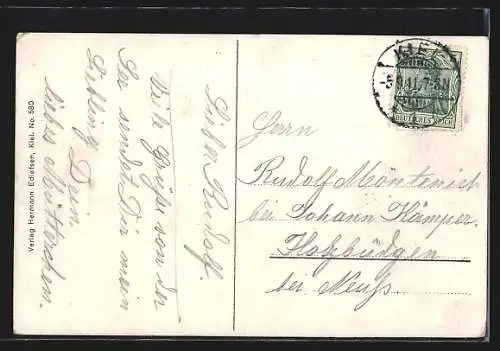 Verlag Hermann Edlefsen, Kiel. No. 580
Lieber Rudolf.
Viele Grüße von der
See sendet Dir mein
Liebling Dein
liebes Mütterchen.
KIEL
5.9.11. 7-8 N
DEUTSCHES REICH
Herrn
Rudolf Montenich
bei Johann Kämper.
Holzbüdgen
bei Neuß.